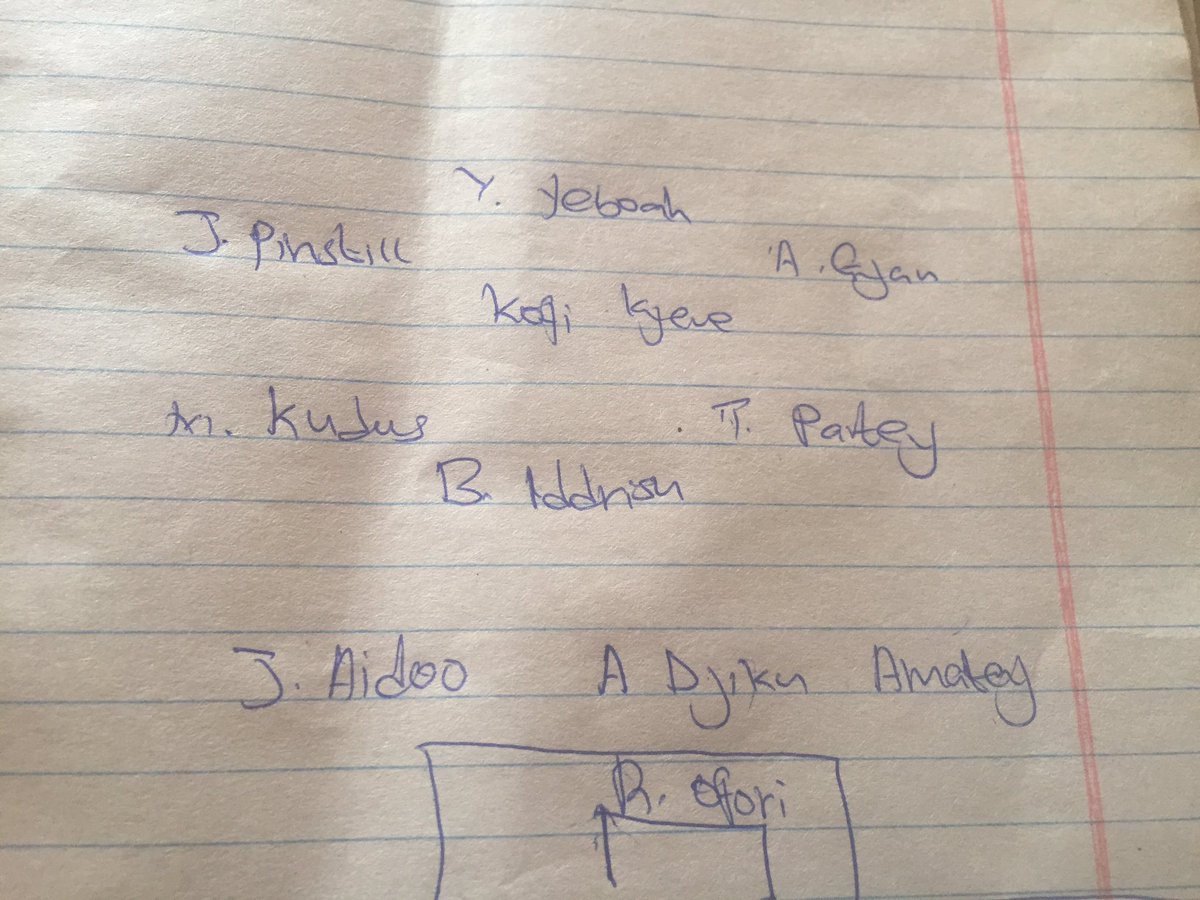 Y. Yeboah
J. Pinstill A. Gyan
Kofi Kyere
M. Kudus T. Partey
B. Iddrisu
J. Aidoo A Djiku Amatey
R. Ofori